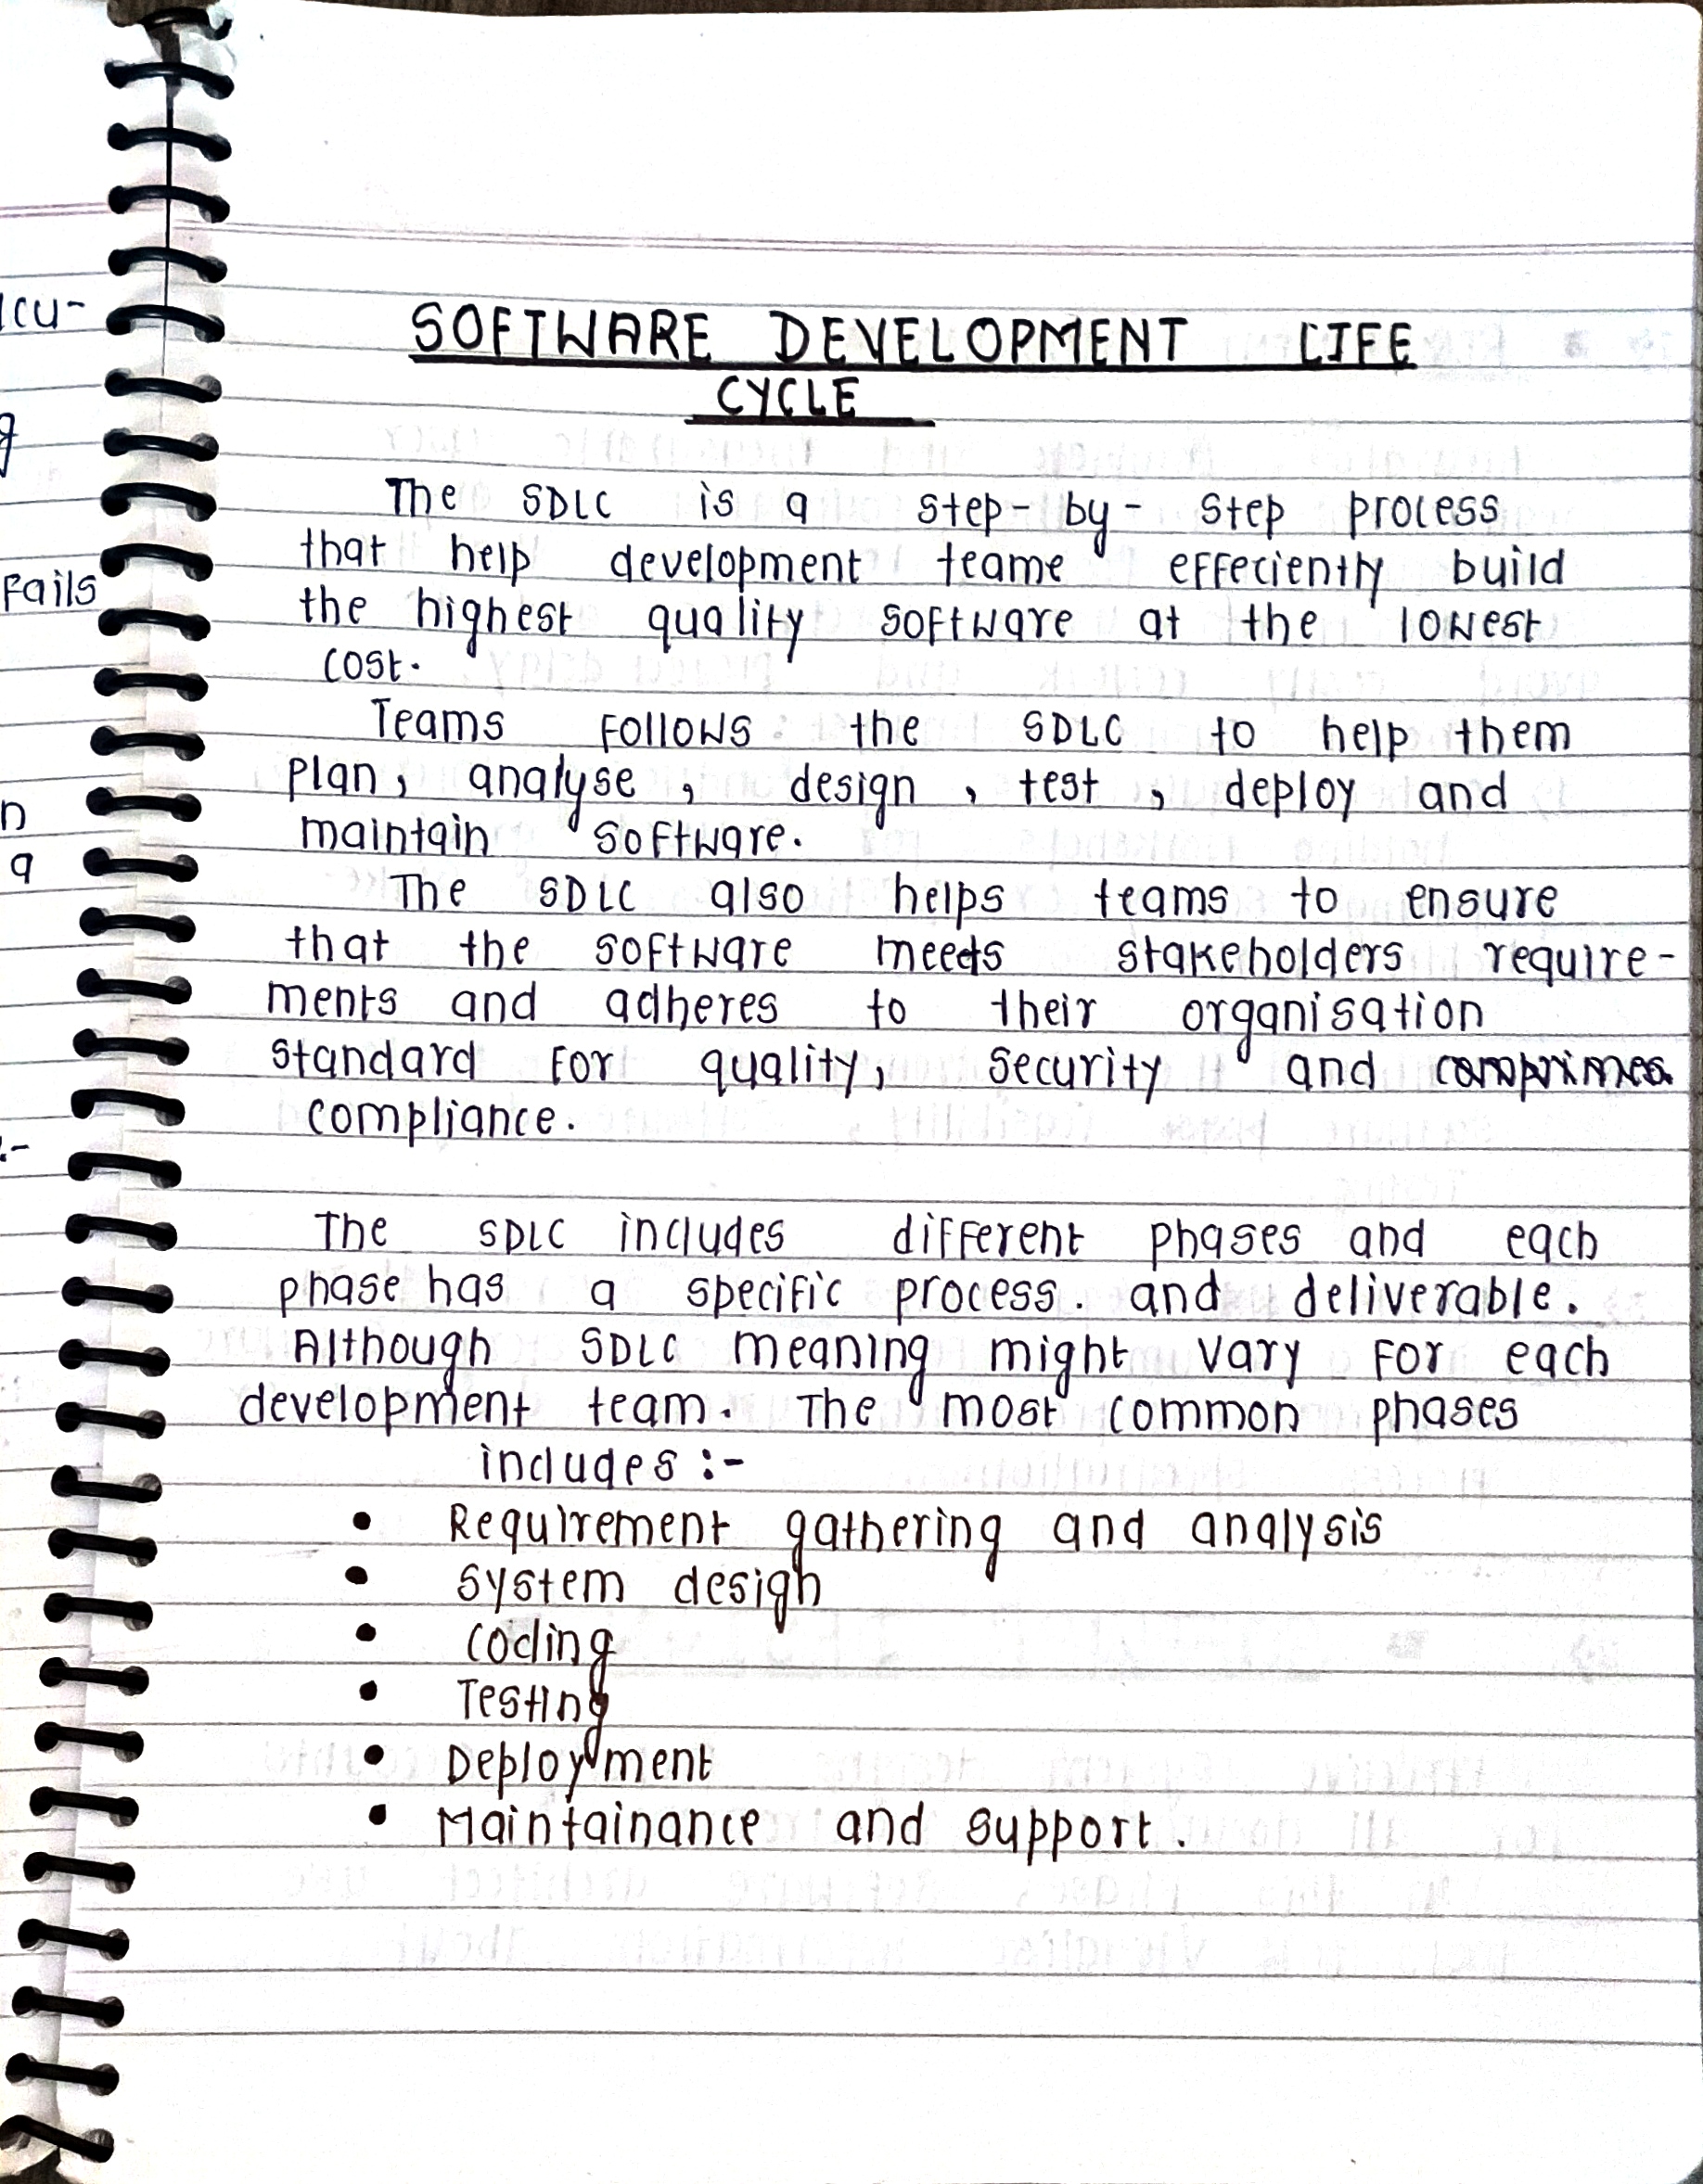 SOFTWARE DEVELOPMENT LIFE
CYCLE
The SDLC is a step-by-step process
that help development teame effeciently build
the highest quality software at the lowest
cost.
Teams follows the SDLC to help them
plan, analyse, design, test, deploy and
maintain software.
The SDLC also helps teams to ensure
that the software meets stakeholders require-
ments and adheres to their organisation
standard for quality, security and
compliance.
The SDLC includes different phases and each
phase has a specific process. and deliverable.
Although SDLC meaning might vary for each
development team. The most common phases
includes :-
• Requirement gathering and analysis
• System design
• Coding
• Testing
• Deployment
• Maintainance and support.
lcu-
g
Fails
n
a
:-